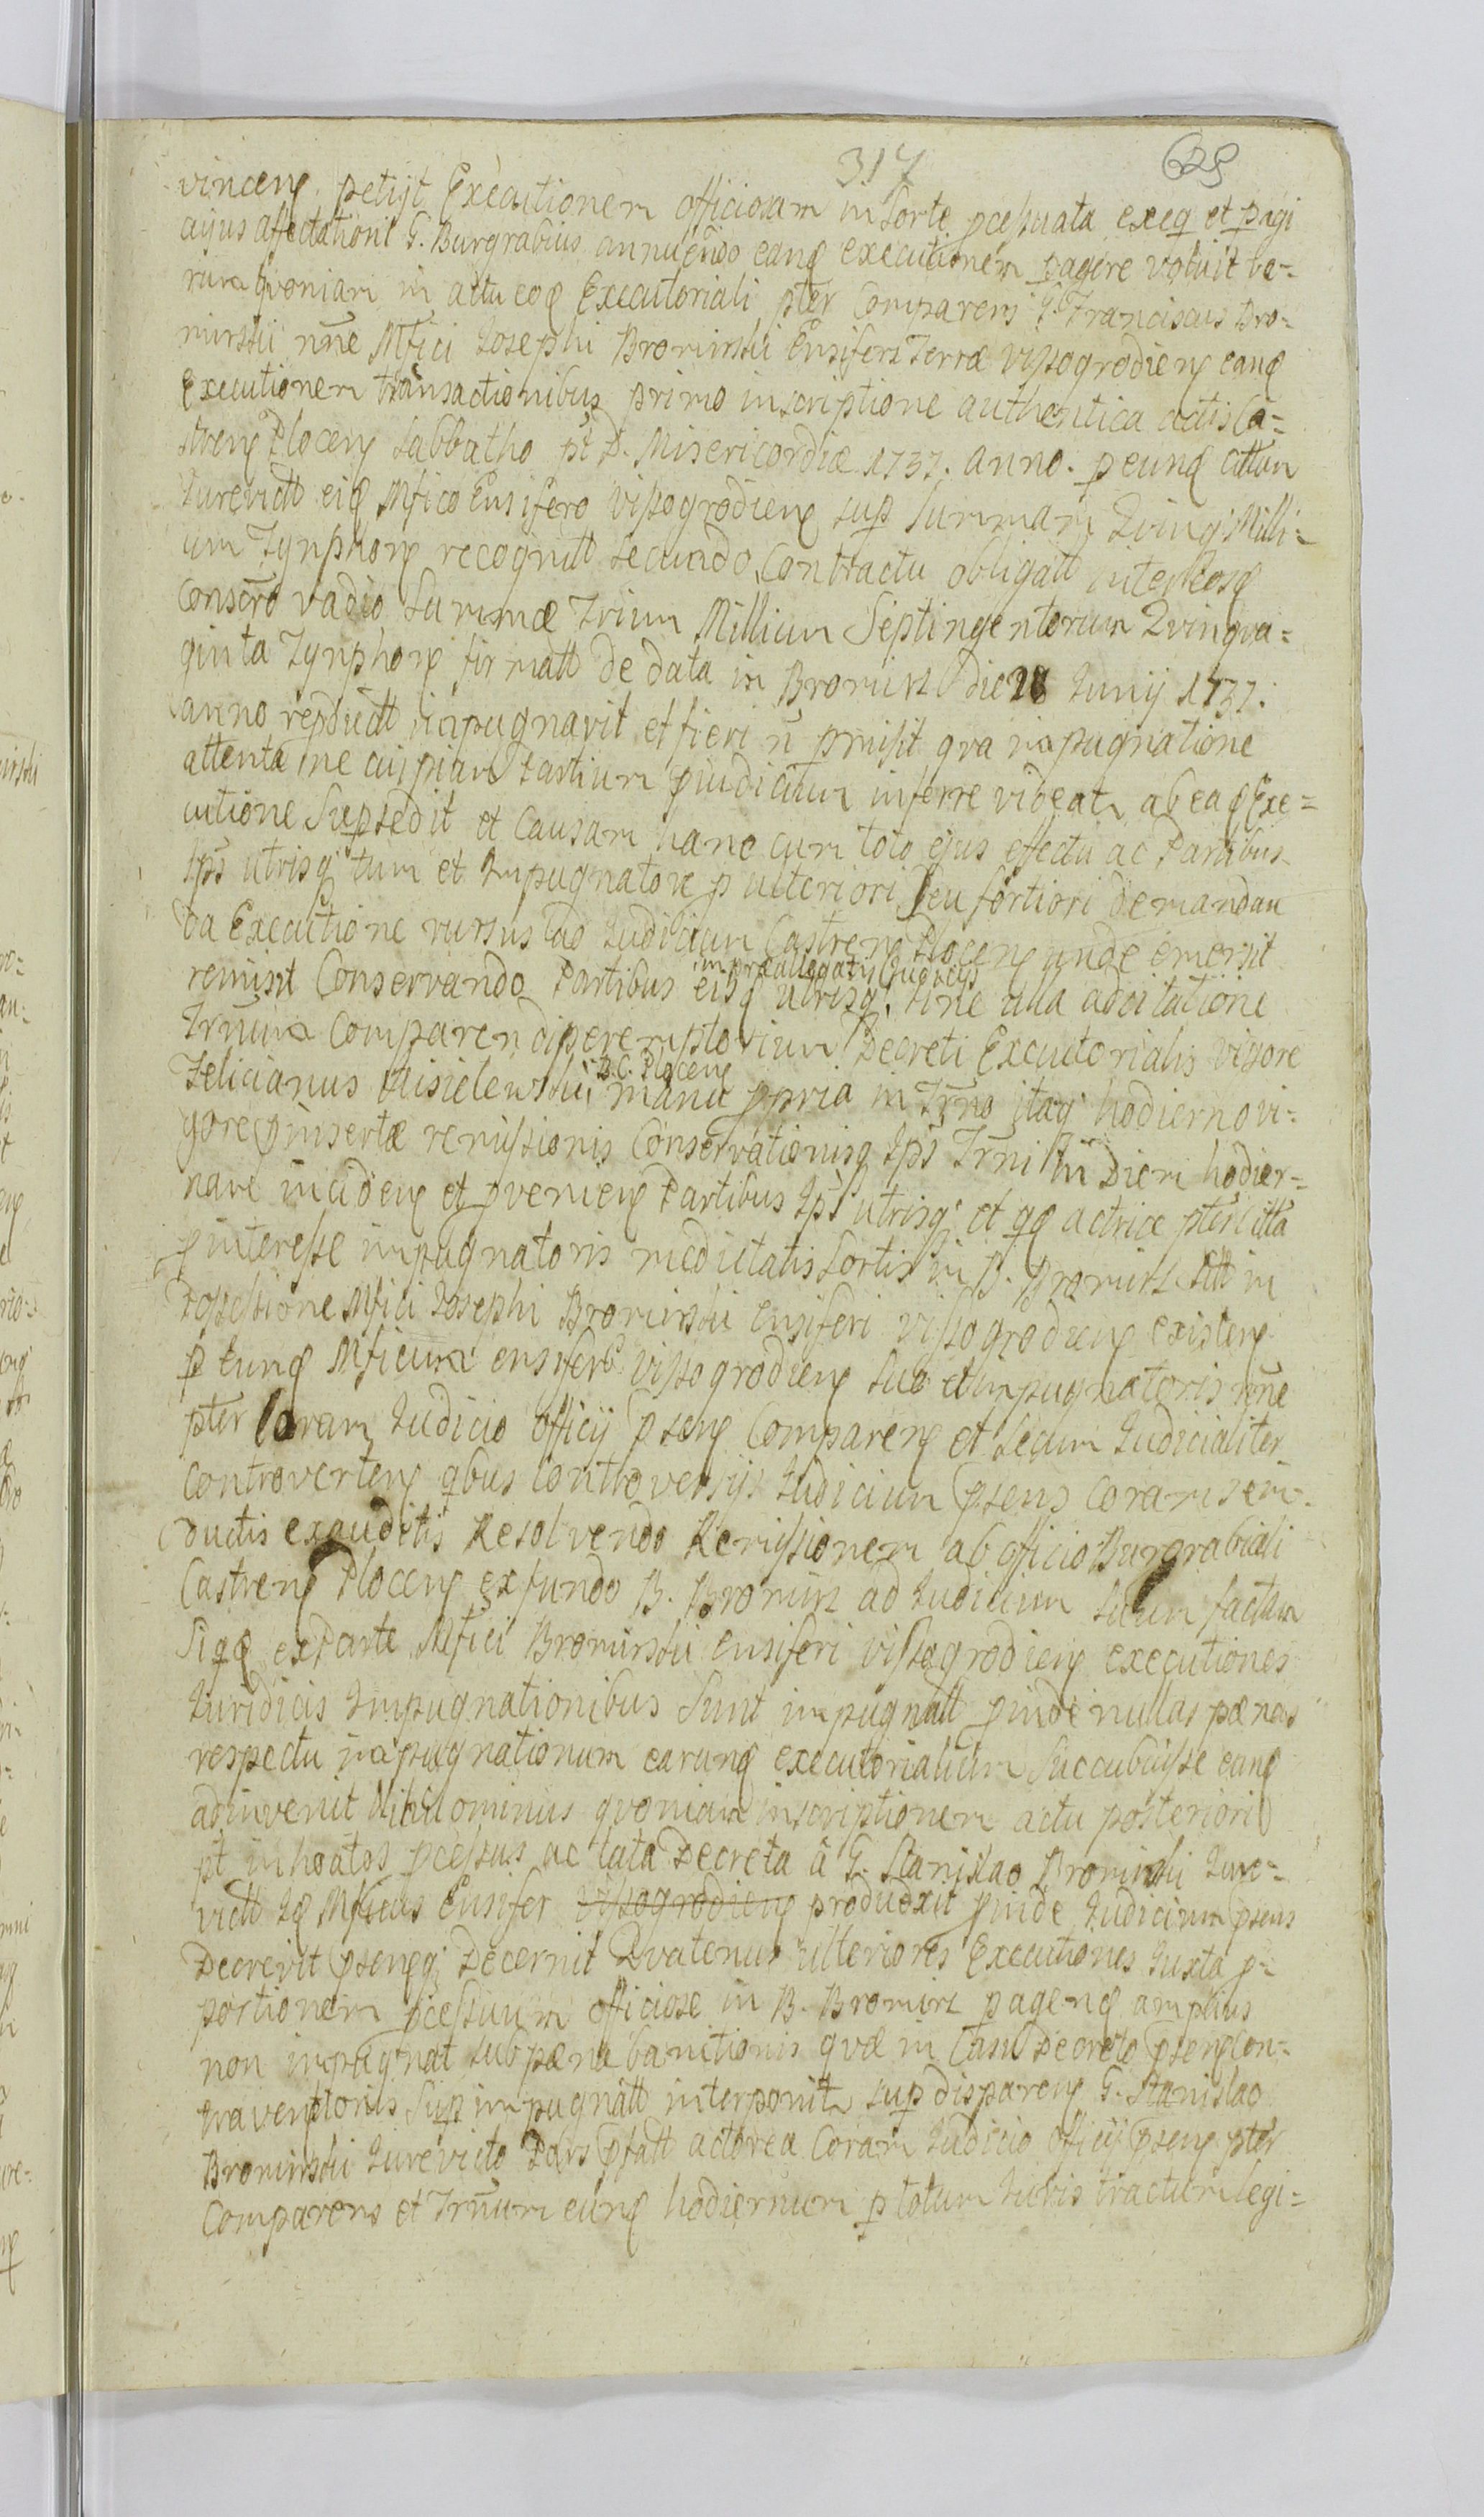 317 629
vinceng petijt Executionem officiosam in Sorte pcessuata exeq et pagi
cujus affectationi G. Burgrabius annuendo eanq executionem pagere voluit ve-
rum qvoniam in actu eoq Executoriali pter Comparens G. Franciscus Bro-
mirskii nne Mfici Josephi Bromirskii Ensiferi Terræ Vissogrodieng eanq
Executionem transactionibus primo inscriptione authentica actis Ca-
streng Ploceng Sabbatho pt D. Misericordiæ 1737. anno. p eunq cittan
Jurevictt eiq Mfico Ensifero Vissogrodieng sup Summam Qvinq Milli-
um Tynphong recognitt Secundo Contractu obligatt inter eosq
Conscro vadio Summæ Trium Millium Septingentorum Qvinqva-
ginta Tynphong firmatt de data in Bromirz die 28 Junij 1737.
anno repductt impugnavit et fieri n pmisit qva impugnatione
attenta ne cuipiam Partium pjudicium inferre videatr ab eaq Exe-
cutione Supsedit et Causam hanc cum toto ejus effectu ac Partibus
Ips utrisq tum et Impugnatore p ulteriori seu fortiori demandan
da Executione rursus ad Judicium Castreng Ploceng unde emersit
remisit Conservando Partibus eisq utrisq sine ulla adcitatione
in præallegatis
Trnum Comparendi peremptorium Decreti Executorialis vigore
Felicianus Misielewskii B.C. Ploceng manu ppria in Trno itaq hodierno vi-
gore pinsertæ remissionis Conservationisq Ips Trni in Diem hodier-
nam incideng et pveniens Partibus Ips utrisq et qq actrice pter citta
p interesse impugnatoris medietatis Sortis in B. Bromirz sitt in
Possessione Mfici Josephi Bromirskii Ensiferi Vissogrodieng existeng
p eunq Mficum ensiferu Vissogrodieng suo et impugnatoris nne
pter Coram Judicio officij pseng Compareng et Secum Judicialiter
Controverteng qbus Controversijs Judicium pseng coram se in-
ductis exauditis Resolvendo Remissionem ab officio Burgrabiali
Castreng Ploceng ex fundo B. Bromirz ad Judicium suum factam
Siqq ex Parte Mfici Bromirskii ensiferi Vissogrodieng executiones
Juridicis Impugnationibus sunt impugnatt pinde nullas pænas
respectu impugnationum earunq executorialium succubuisse eanq
adinvenit Nihilominus qvoniam inscriptionem actu posteriori
pt inchoatos pcessus ac lata Decreta â G. Stanislao Bromirskii Jure-
victt Iq Mficus Ensifer Vissogrodieng produxit pinde Judicium pseng
Decrevit psengq Decernit Qvatenus ulteriores Executiones Juxta p-
portionem pcessuum officiose in B. Bromirz pagenq amplius
non impugnat sub pæna bannitionis qvæ in Casu Decreto pseng con-
traventionis Sup impugnatt interponitr sup dispareng G. Stanislao
Bromirskii Jurevicto Pars pfatt actorea Coram Judicio officij pseng pter
Comparens et Trnum eunq hodiernum p totum Juris tractum legi-